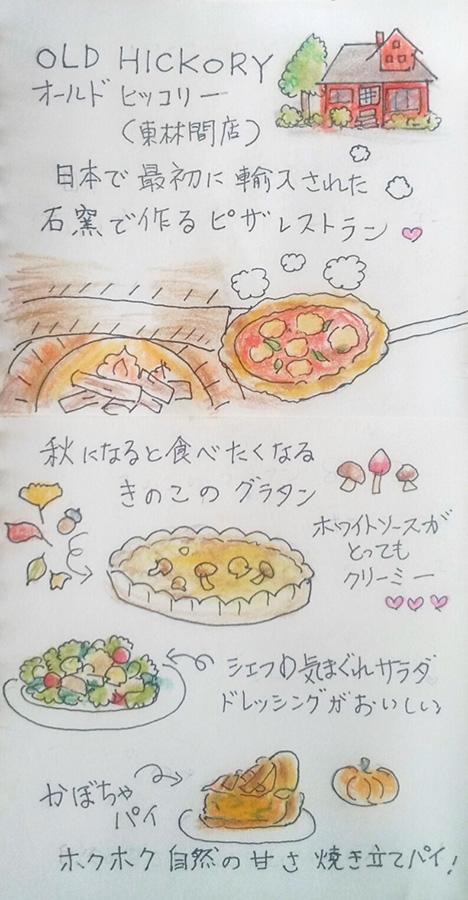 OLD HICKORY
オールド ヒッコリー
(東林間店)
日本で最初に輸入された
石窯で作るピザレストラン
秋になると食べたくなる
きのこのグラタン
ホワイトソースが
とっても
クリーミー
シェフの気まぐれサラダ
ドレッシングがおいしい
かぼちゃ
パイ
ホクホク自然の甘さ焼き立てパイ!